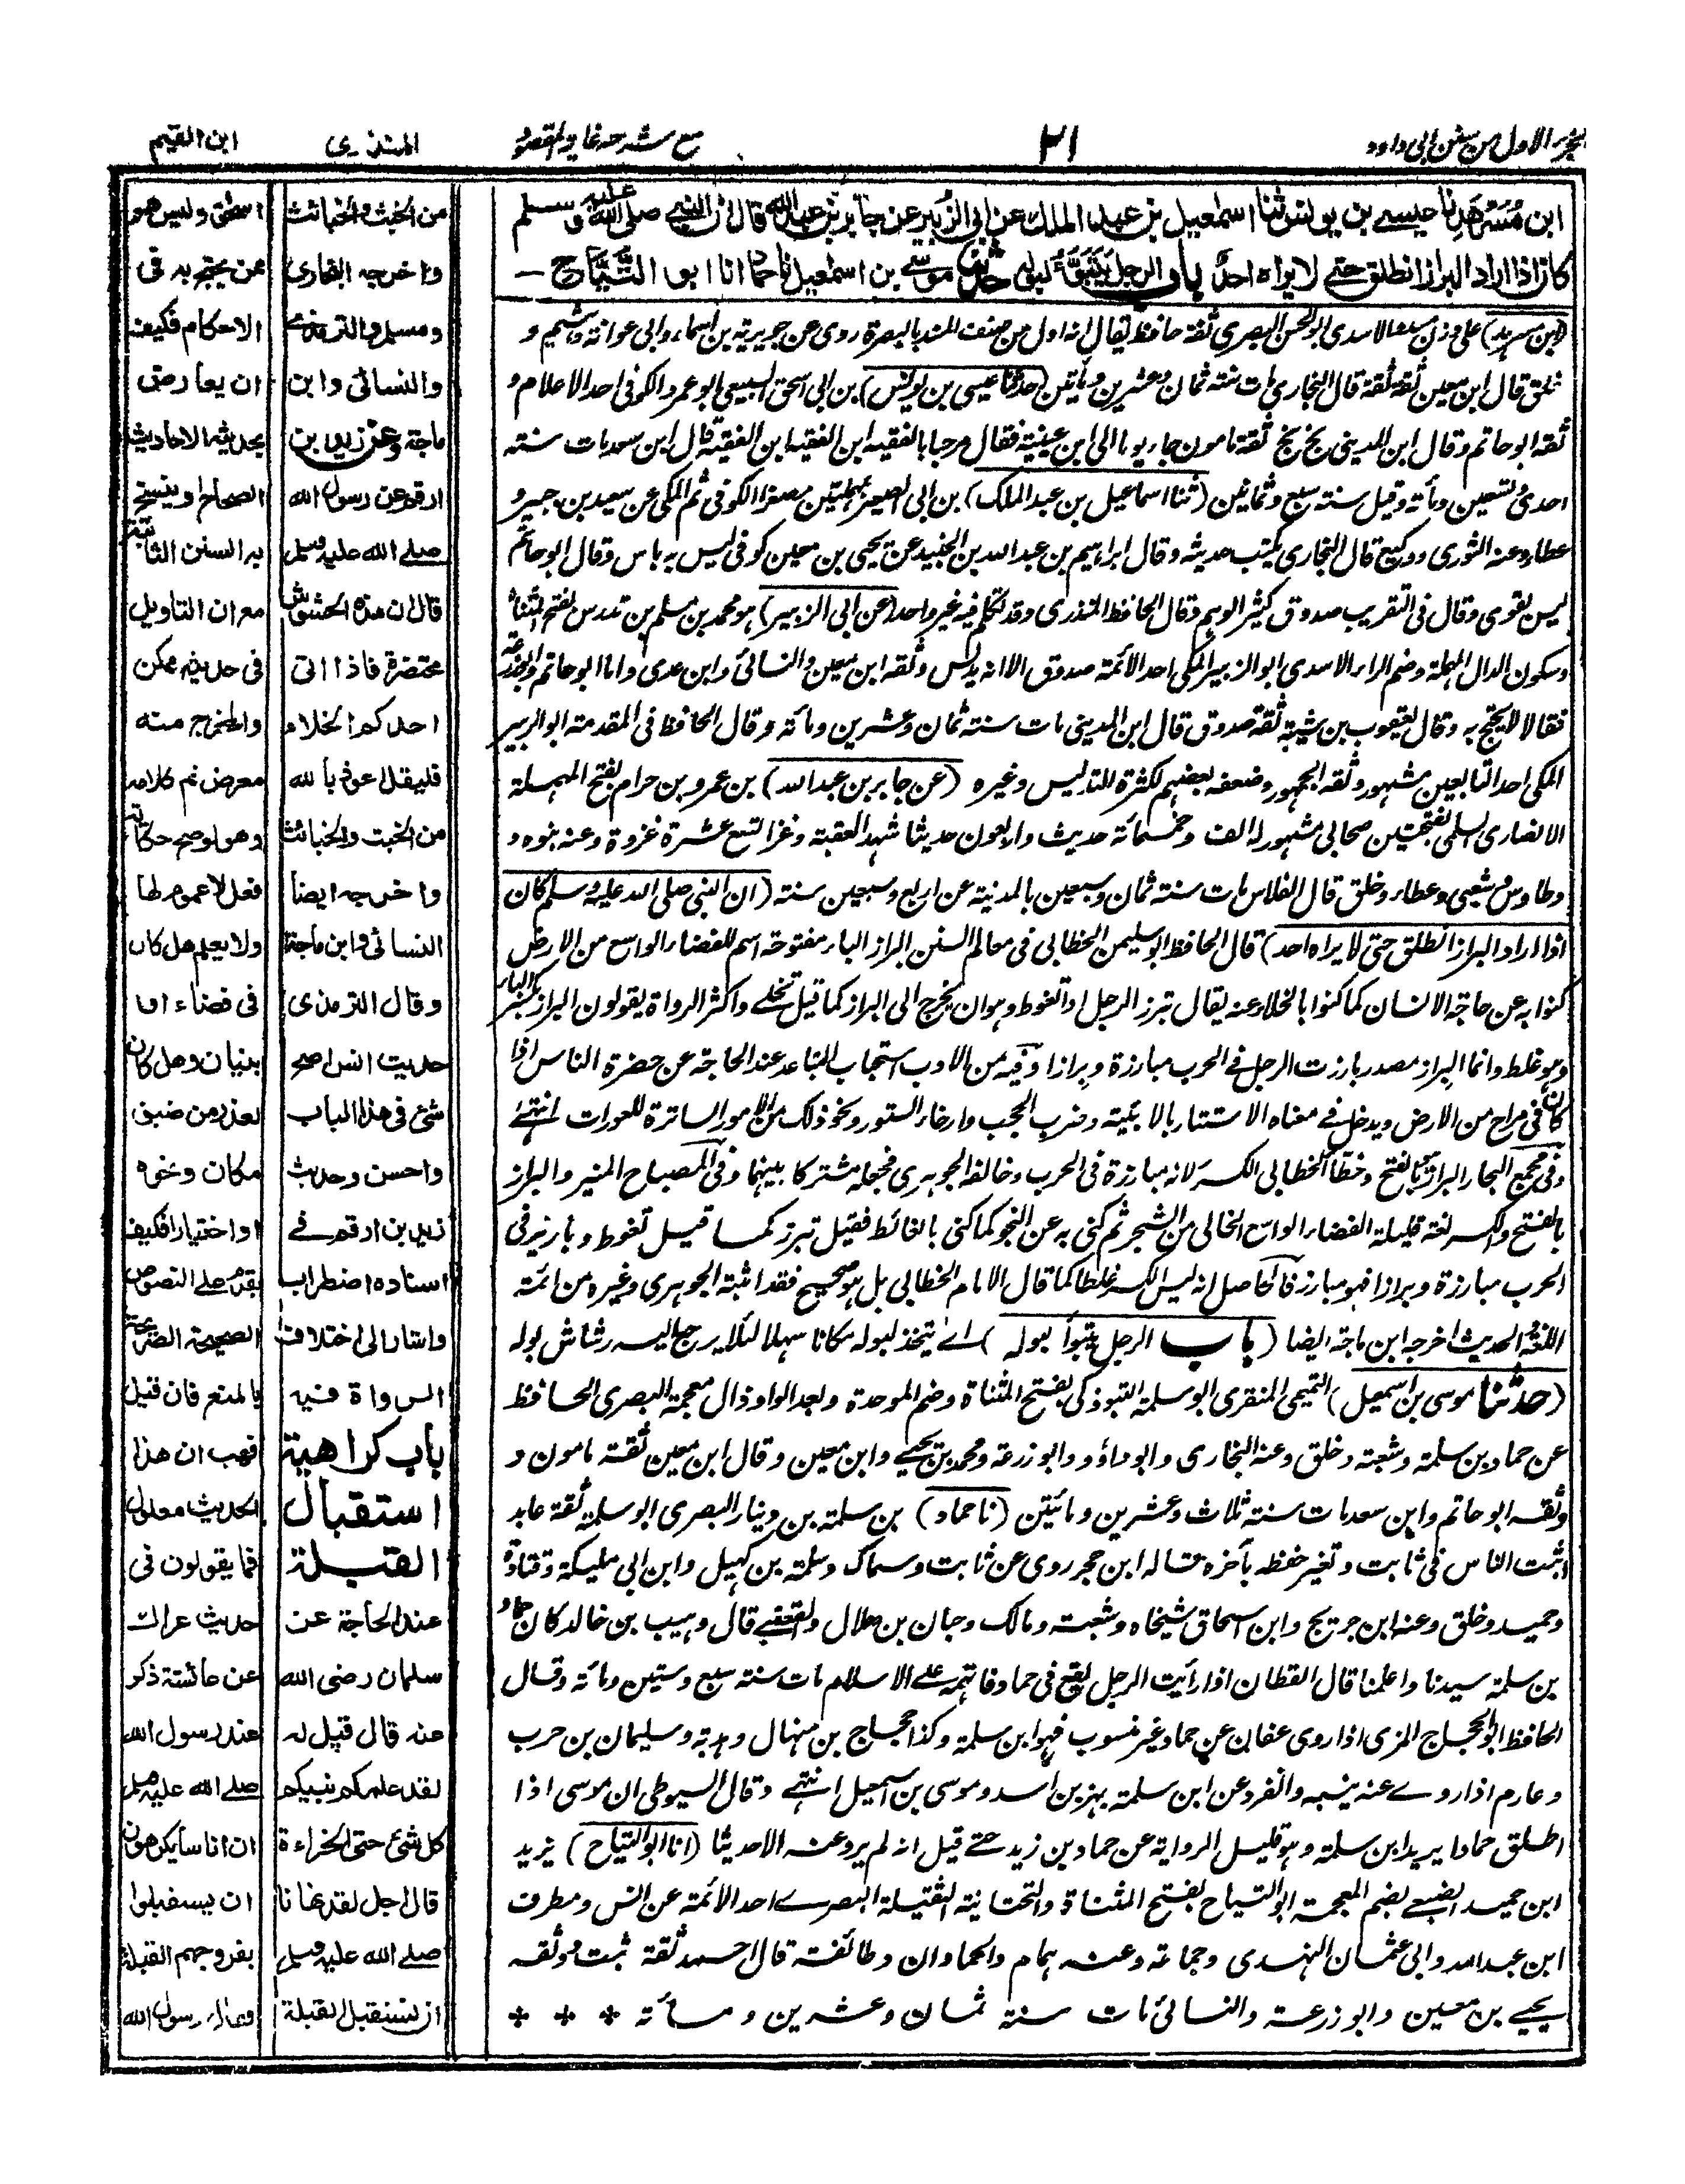 الجزء الاول من سنن ابي داود
٢١
مع شرحه غاية المقصود
المنذري
ابن القيم
ابن مُسَرْهَدٍ نا عيسے بن يونس ثنا اسمٰعيل بن عبد الملك عن ابي الزبير عن جابر بن عبد الله قال ان النبي صلى الله عليه وسلم
كان اذا اراد البراز انطلق حتے لا يراه احدٌ باب الرجل يتبوّءُ لبوله حدثنا موسے بن اسمعيل نا حماد انا ابو التَّيَّاح –
(ابن مسرهد) على وزن الاسدى ابو الحسن البصري ثقة حافظ يقال انه اول من صنف المسند بالبصرة روى عن جويرية بن اسماء وابى عوانة وهشيم و
خلق قال ابن معين ثقة ثقة قال البخاري مات سنة ثمان وعشرين ومأتين (حدثنا عيسى بن يونس) بن ابى اسحق السبيعي ابو عمرو الكوفى احد الاعلام و
ثقه ابو حاتم وقال ابن المديني بخ بخ ثقة مامون جاء يوما الى ابن عيينة فقال مرحبا بالفقيه ابن الفقيه ابن الفقيه قال ابن سعد مات سنة
احدى وتسعين ومأة وقيل سنة سبع وثمانين (ثنا اسماعيل بن عبد الملك) بن ابى الصعير بمهملتين مصغرا الكوفى ثم المكى عن سعيد بن جبير و
عطاء وعنه الثورى ووكيع قال البخارى يكتب حديثه وقال ابراهيم بن عبد الله بن الجنيد عن يحيى بن معين كوفى ليس به باس وقال ابو حاتم
ليس بقوى وقال فى التقريب صدوق كثير الوهم وقال الحافظ المنذرى وقد تكلم فيه غير واحد (عن ابى الزبير) هو محمد بن مسلم بن تدرس بفتح المثناة
وسكون الدال المهملة وضم الراء الاسدى ابو الزبير المكى احد الائمة صدوق الا انه يدلس وثقه ابن معين والنسائى وابن عدى واما ابو حاتم وابو زرعة
فقالا لا يحتج به وقال يعقوب بن شيبة ثقة صدوق قال ابن المديني مات سنة ثمان وعشرين ومأة وقال الحافظ فى المقدمة ابو الزبير
المكى احد التابعين مشهور وثقه الجمهور وضعفه بعضهم لكثرة التدليس وغيره (عن جابر بن عبد الله) بن عمرو بن حرام بفتح المهملة
الانصارى السلمى بفتحتين صحابى مشهور له الف وخمسمائة حديث واربعون حديثا شهد العقبة وغزا تسع عشرة غزوة وعنه بنوه و
وطاوس وشعبى وعطاء وخلق قال الفلاس مات سنة ثمان وسبعين بالمدينة عن اربع وسبعين سنة (ان النبى صلى الله عليه وسلم كان
اذا اراد البراز انطلق حتى لا يراه احد) قال الحافظ ابو سليمن الخطابى فى معالم السنن البراز الباء مفتوحة اسم للفضاء الواسع من الارض
كنوا به عن حاجة الانسان كما كنوا بالخلاء عنه يقال تبرز الرجل اذا تغوط وهو ان يخرج الى البراز كما قيل تخلے واكثر الرواة يقولون البراز بكسر الباء
وهو غلط وانما البراز مصدر بارزت الرجل فے الحرب مبارزة وبرازا وفيه من الادب استحباب التباعد عند الحاجة عن حضرة الناس اذا
كان فى مراح من الارض ويدخل فے معناه الاستتار بالابنية وضرب الحجب وارخاء الستور ونحو ذلك من الامور الساترة للعورات انتهے
وفى مجمع البحار البراز بالفتح وخطأ الخطابى الكسر لانه مبارزة فى الحرب وخالفه الجوهرى فجعله مشتركا بينهما وفى المصباح المنير والبراز
بالفتح والكسر لغة قليلة الفضاء الواسع الخالى من الشجر ثم كنى به عن النجو كما كنى بالغائط فقيل تبرز كما قيل تغوط وبارز فى
الحرب مبارزة وبرازا فهو مبارز فالحاصل انه ليس الكسر غلطا كما قال الامام الخطابى بل هو صحيح فقد اثبته الجوهرى وغيره من ائمة
اللغة والحديث اخرجه ابن ماجة ايضا (باب الرجل يتبوأ لبوله) اے يتخذ لبوله مكانا سهلا لئلا يرجع اليه رشاش بوله
(حدثنا موسى بن اسمعيل) التميمى المنقرى ابو سلمة التبوذكى بفتح المثناة وضم الموحدة وبعد الواو ذال معجمة البصرى الحافظ
عن حماد بن سلمة وشعبة وخلق وعنه البخارى وابو داؤد وابو زرعة ومحمد بن يحيے وابن معين وقال ابن معين ثقة مامون و
وثقه ابو حاتم وابن سعد مات سنة ثلاث وعشرين ومائتين (نا حماد) بن سلمة بن دينار البصرى ابو سلمة ثقة عابد
اثبت الناس فى ثابت وتغير حفظه بآخره قاله ابن حجر روى عن ثابت وسماك وسلمة بن كهيل وابن ابى مليكة وقتادة
وحميد وخلق وعنه ابن جريج وابن اسحاق شيخاه وشعبة ومالك وحبان بن هلال والقعنبے قال وهيب بن خالد كان حماد
بن سلمة سيدنا واعلمنا قال القطان اذا رأيت الرجل يقع فى حماد فاتهمه علے الاسلام مات سنة سبع وستين ومائة وقال
الحافظ ابو الحجاج المزى اذا روى عفان عن حماد غير منسوب فهو ابن سلمة وكذا حجاج بن منهال وهدبة وسليمان بن حرب
وعارم اذا روے عنه ينسبه وانفرد عن ابن سلمة بهز بن اسد وموسى بن اسمعيل انتهے وقال السيوطى ان موسى اذا
اطلق حمادا يريد ابن سلمة وهو قليل الرواية عن حماد بن زيد حتے قيل انه لم يرو عنه الا حديثا (انا ابو التياح) يزيد
ابن حميد الضبعے بضم المعجمة ابو التياح بفتح المثناة والتحتانية الثقيلة البصرے احد الائمة عن انس ومطرف
ابن عبد الله وابى عثمان النهدى وجماعة وعنه همام والحمادان وطائفة قال احمد ثقة ثبت وثقه
يحيے بن معين وابو زرعة والنسائى مات سنة ثمان وعشرين ومائة * * *
من الخبث والخبائث
واخرجه البخارى
ومسلم والترمذے
والنسائى وابن
ماجة وعن زيد بن
ارقم عن رسول الله
صلے الله عليه وسلم
قال ان هذه الحشوش
محتضرة فاذا اتى
احدكم الخلاء
فليقل اعوذ بالله
من الخبث والخبائث
واخرجه ايضا
النسائى وابن ماجة
وقال الترمذى
حديث انس اصح
شئ فى هذا الباب
واحسن وحديث
زيد بن ارقم فے
اسناده اضطراب
واشار الى اختلاف
الرواة فيه
باب كراهية
استقبال
القبلة
عند الحاجة عن
سلمان رضى الله
عنه قال قيل له
لقد علمكم نبيكم
كل شئ حتى الخراءة
قال اجل لقد نهانا
صلے الله عليه وسلم
ان نستقبل القبلة
اسحق وليس هو
ممن يحتج به فى
الاحكام فكيف
ان يعارض
بحديثه الاحاديث
الصحاح وينسخ
به السنن الثابتة
مع ان التاويل
فى حديثه ممكن
والمخرج منه
معرض تم كلامه
وهو لو صح حكاية
فعل لا عموم لها
ولا يعلم هل كان
فى فضاء او
بنيان وهل كان
لعذر من ضيق
مكان ونحوه
او اختيارا فكيف
يقدم علے النصوص
الصحيحة الصريحة
بالمنع فان قيل
فهب ان هذا
الحديث معلول
فما يقولون فى
حديث عراك
عن عائشة ذكر
عند رسول الله
صلے الله عليه وسلم
ان اناسا يكرهون
ان يستقبلوا
بفروجهم القبلة
فقال رسول الله